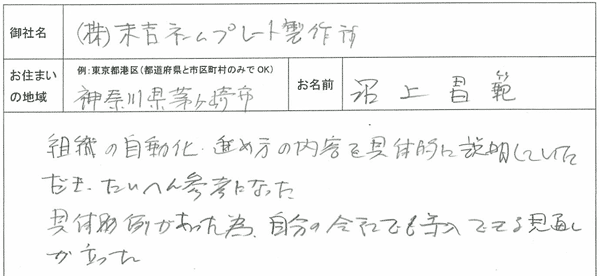 御社名 (株)末吉ネームプレート製作所
お住まいの地域 例：東京都港区(都道府県と市区町村のみでOK) 神奈川県茅ヶ崎市 お名前 沼上昌範
組織の自動化・進め方の内容を具体的に説明していた
だき、たいへん参考になった
具体的例があった為、自分の会社でも導入できる見通し
が立った